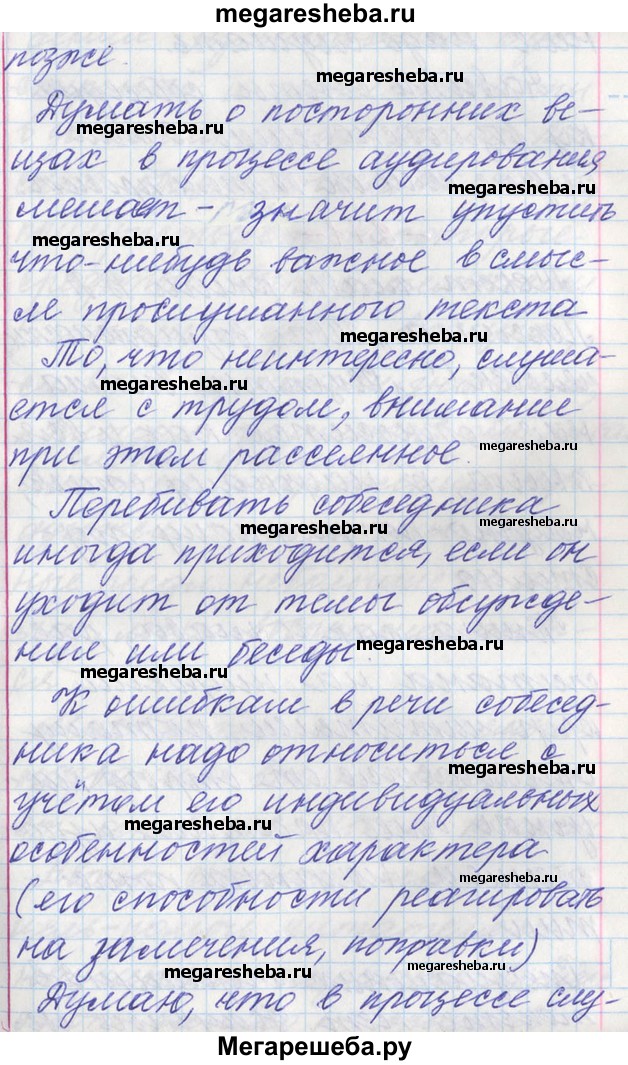 megaresheba.ru
позже.
megaresheba.ru
Думать о посторонних ве-
megaresheba.ru
щах в процессе аудирования
megaresheba.ru
мешает - значит упустить
megaresheba.ru
что-нибудь важное в смыс-
ле прослушанного текста
megaresheba.ru
То, что неинтересно, слуша-
megaresheba.ru
ется с трудом, внимание
при этом рассеянное.
megaresheba.ru
Перебивать собеседника
megaresheba.ru
megaresheba.ru
иногда приходится, если он
уходит от темы обсужде-
ния или беседы.
megaresheba.ru
megaresheba.ru
К ошибкам в речи собесед-
ника надо относиться с
megaresheba.ru
учётом его индивидуальных
megaresheba.ru
особенностей характера
(его способности реагировать
megaresheba.ru
на замечения, поправки)
megaresheba.ru
megaresheba.ru
Думаю, что в процессе слу-
Мегарешеба.ру